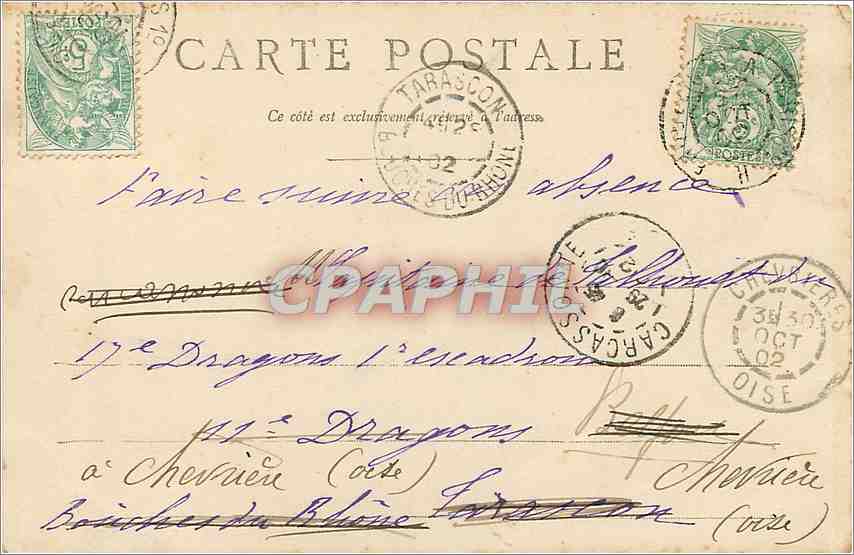 CARTE POSTALE
Ce côté est exclusivement réservé à l'adresse
5
POSTES
TARASCON
02
BOUCHES-DU-RHÔNE
Faire suivre absence
Militaire de
CPAPHIL
17e Dragons 1er escadron
CARCASSONNE
CHEVRIERES
3E 30
OCT
02
OISE
11e Dragons
à Chevrière (oise) Chevrière
Bouches du Rhône Tarascon (oise)